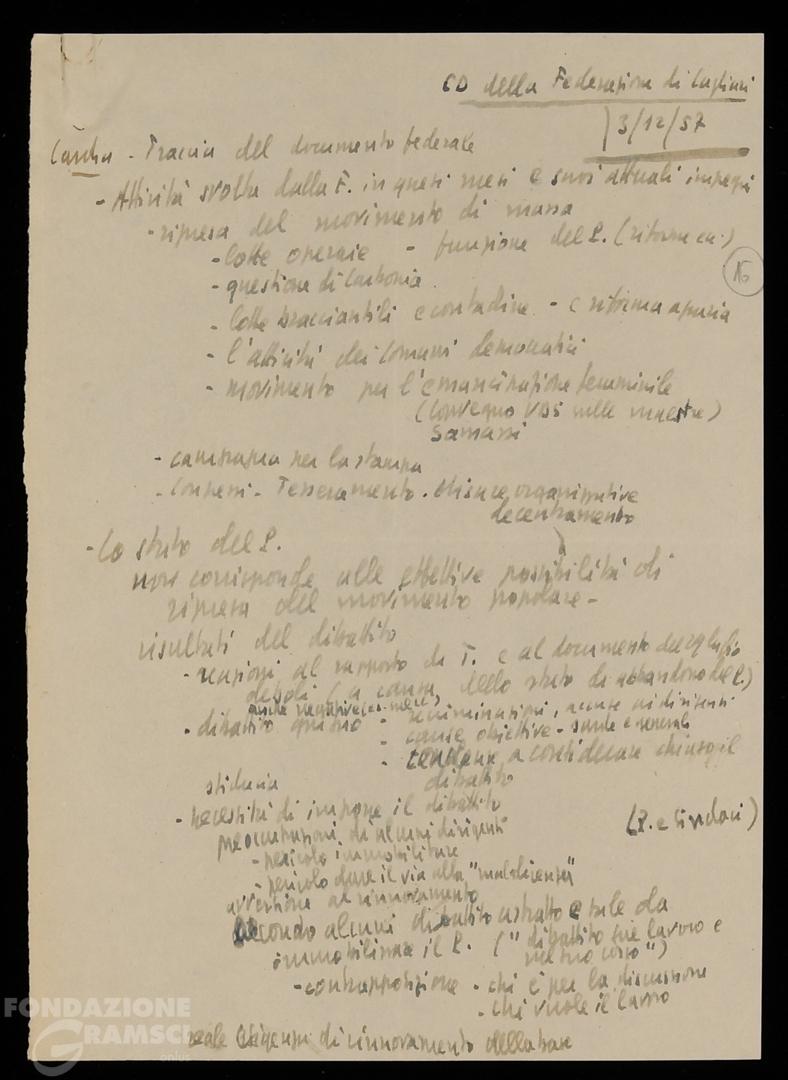 CD della Federazione di Cagliari
3/12/57
- Traccia del documento federale
- Attività svolta dalla F. in questi mesi e suoi attuali impegni
- ripresa del movimento di massa
- lotte operaie - funzione del P. (riforme
16
- questione di Carbonia
- lotte bracciantili e contadine - e riforma agraria
- l'attività dei Comuni democratici
- movimento per l'emancipazione femminile
(Convegno nelle maestre)
Samassi
- campagna per la stampa
- Congressi - Tesseramento - Misure organizzative
decentramento
- Lo stato del P.
non corrisponde alle effettive possibilità di
ripresa del movimento popolare -
risultati del dibattito
- reazioni al rapporto di T. e al documento del luglio
deboli (a causa dello stato di abbandono del P.)
anche negative
- dibattito - recriminazioni, accuse ai dirigenti
- cause obiettive - sarde e generali
- tendenza a considerare chiuso il
dibattito
sfiducia
- necessità di imporre il dibattito
preoccupazioni di alcuni dirigenti
(P. e Sindaci)
- pericolo immobilizzare
- pericolo dare il via alla "maldicenza"
avversione al rinnovamento
secondo alcuni dibattito astratto e tale da
immobilizzare il P. ("dibattito sul lavoro e
nel suo corso")
- contrapposizione - chi è per la discussione
- chi vuole il lavoro
reale esigenza di rinnovamento della base
FONDAZIONE
GRAMSCI
onlus